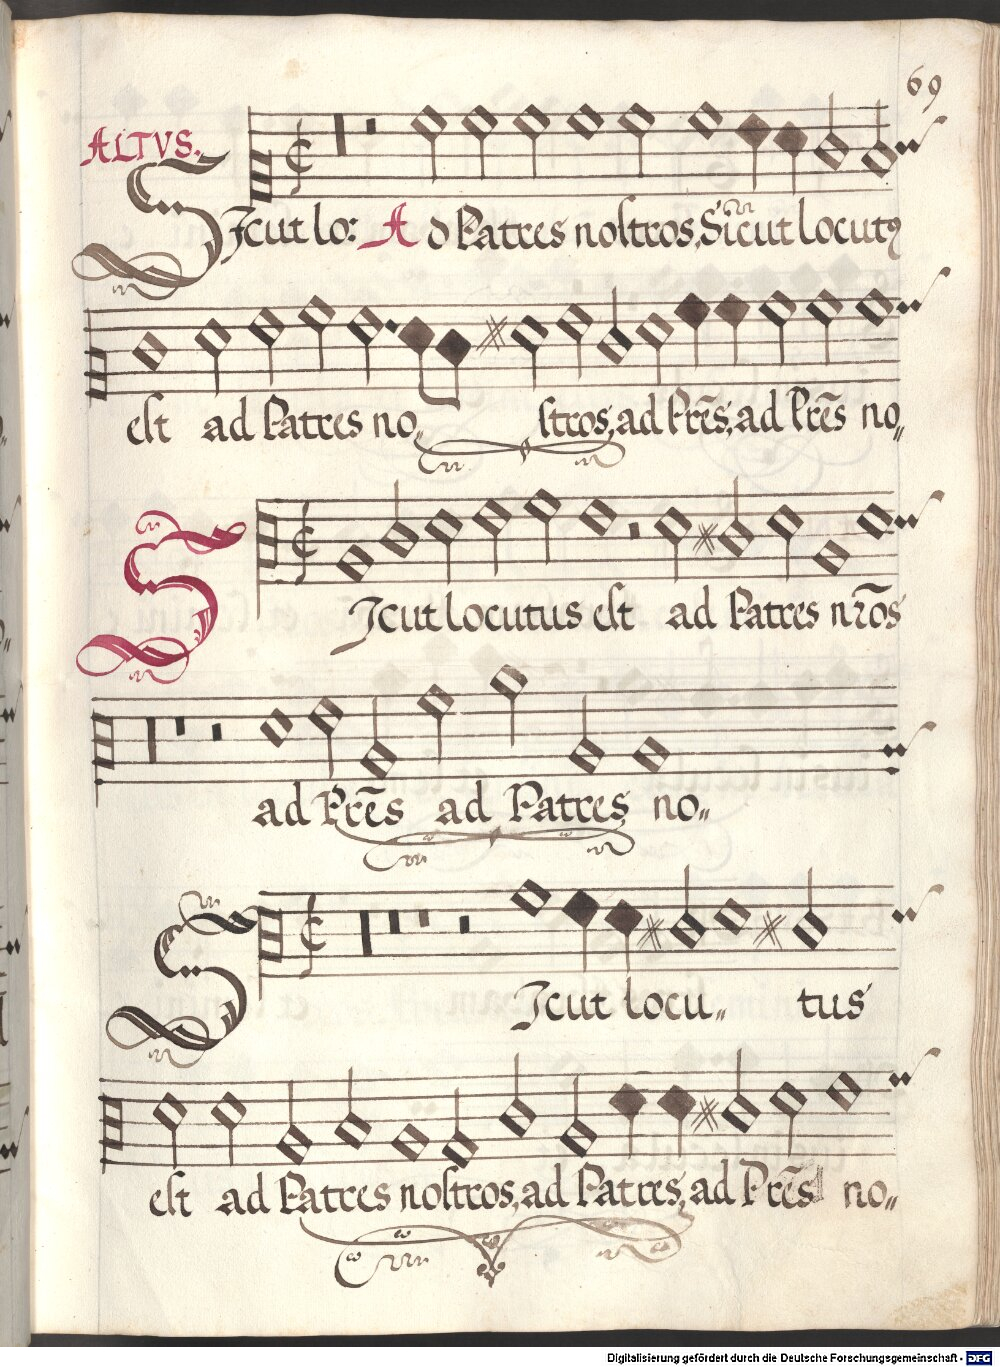 69
ALTVS.
SIcut lo: Ad Patres nostros, Sicut locutꝰ
est ad Patres no„ stros, ad Pr̄es, ad Pr̄es no„
SIcut locutus est ad Patres nr̄os
ad Pr̄es ad Patres no„
SIcut locu„ tus
est ad Patres nostros, ad Patres, ad Pr̄es no„
Digitalisierung gefördert durch die Deutsche Forschungsgemeinschaft - DFG